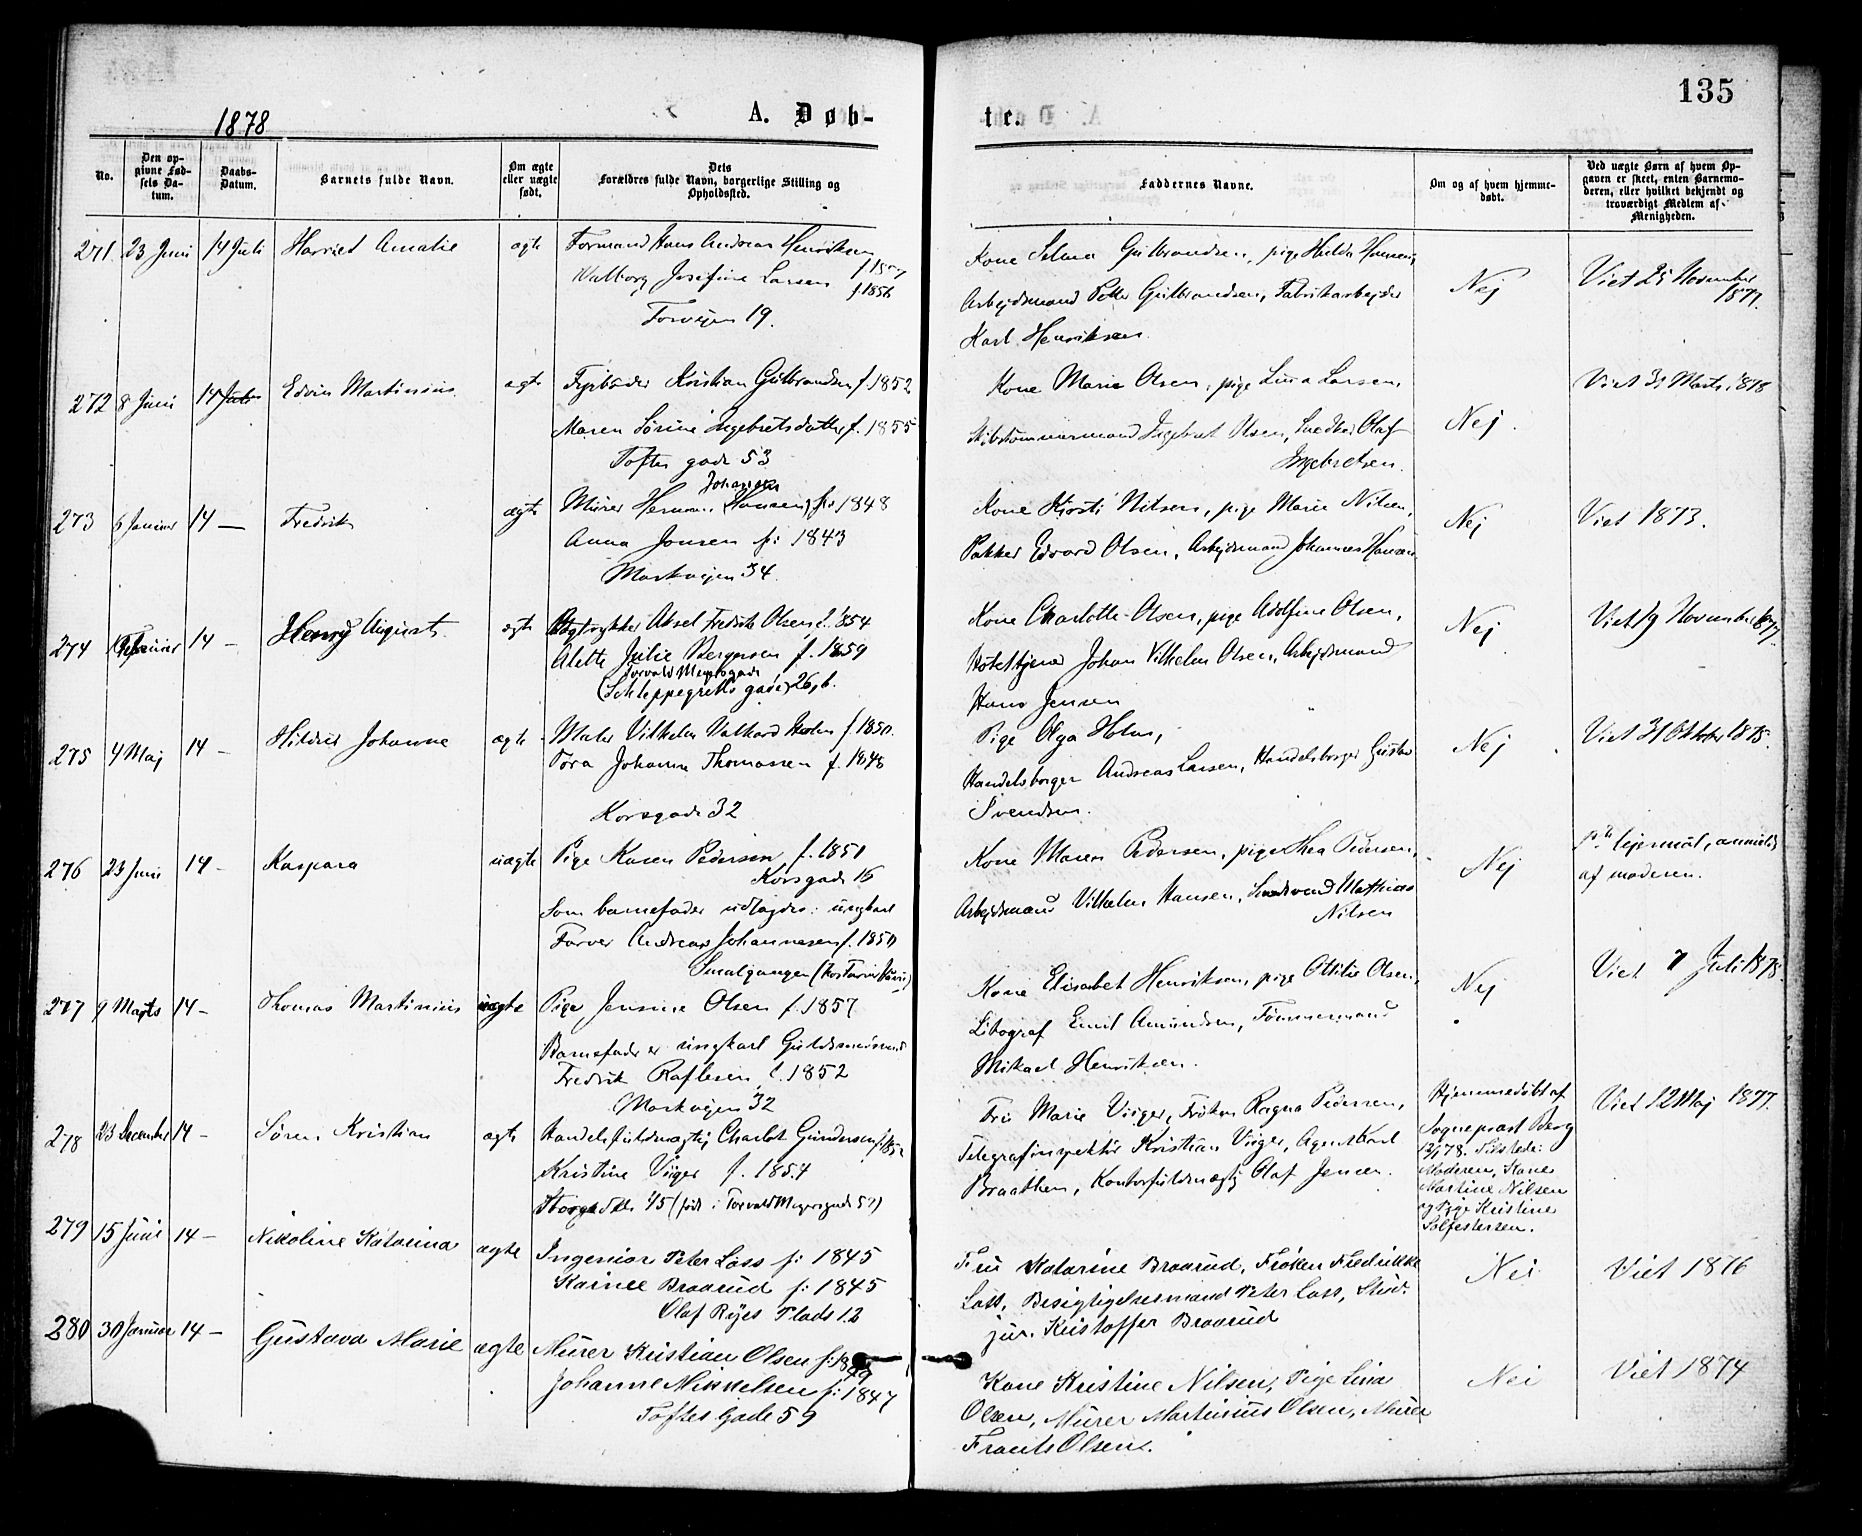 135
1878
A. Døb-
te.
No.
Den op-
givne Fød-
sels Da-
tum.
Daabs-
Datum.
Barnets fulde Navn.
Om ægte
eller uægte
født.
Dets
Forældres fulde Navn, borgerlige Stilling og
Opholdssted.
Faddernes Navne.
Om og af hvem hjemme-
døbt.
Ved uægte Børn af hvem Op-
gaven er skeet, enten Barnemo-
deren, eller hvilket bekjendt og
troværdigt Medlem af
Menigheden.
271. 23 Juni 14 Juli Harriet Amalie ægte Formand Hans Andreas Henriksen
Valborg Josefine Larsen f. 1856
Torvejen 19.
Kone Selma Gulbrandsen, pige Hulda Hansen,
Arbejdsmand Petter Gulbrandsen, Fabrikarbejder
Karl Henriksen.
Nej
Viet 25 November
1877.
272 8 Juni 14 Juli Edvin Martinius ægte Kristian Gulbrandsen f. 1852
Maren Sørine Ingebretsdatter f. 1855
Toftes gade 53
Kone Marie Olsen, pige Lina Larsen,
Skibstømmermand Ingebret Olsen, Snedker Olaf
Ingebretsen.
Nej.
Viet 31 Marts 1878
273 6 Januar 14 — Fredrik ægte Murer Herman Hansen f. 1848
Johansen
Anna Jonsen f: 1843
Markvejen 34.
Kone Kjersti Nilsen, pige Marie Nilsen,
Pakker Edvard Olsen, Arbejdsmand Johannes Hansen
Nej
Viet 1873.
274 Februar 14 — Henry August ægte Bogtrykker Aksel Fredrik Olsen f. 1854
Alette Julie Bergersen f. 1859
Torvald Meyersgade
(Schleppegrells gade) 26, b.
Kone Charlotte Olsen, pige Adolfine Olsen,
Hoteltjener Johan Vilhelm Olsen, Arbejdsmand
Hans Jensen
Nej
Viet 19 November 1877
275 4 Maj 14 — Hildur Johanne ægte Maler Vilhelm Valkard Holm f. 1850.
Tora Johanne Thomassen f. 1848
Korsgade 32
Pige Olga Holm,
Handelsborger Andreas Larsen, Handelsborger Gustav
Svendsen.
Nej
Viet 31 Oktober 1875.
276 23 Juni 14 — Kaspara uægte Pige Karen Pedersen f. 1851
Korsgade 16
Som barnefader udlagdes: ungkarl
Farver Andreas Johannesen f. 1850
Smalgangen
Kone Maren Pedersen, pige Thea Pedersen,
Arbejdsmand Vilhelm Hansen, Mathias
Nilsen
Nej
lejermål, anmeldt
af moderen.
277 9 Marts 14 — Thomas Martinius uægte Pige Jensine Olsen f. 1857
Barnefader ungkarl Guldsmedsvend
Fredrik Raflesen f. 1852
Markvejen 32
Kone Elisabet Henriksen, pige Ottilie Olsen,
Litograf Emil Amundsen, Tømmermand
Mikael Henriksen.
Nej
Viet 7 Juli 1878
278 23 December 14 — Søren Kristian ægte Handelsfuldmægtig Charlot Gundersen
Kristine Viiger f. 1854
Storgaden 45 (født i Torvald Meyersgade 52)
Fru Marie Viiger, Frøken Ragna Pedersen,
Telegrafinspektør Kristian Viiger, Agent Karl
Braathen, Kontorfuldmægtig Olaf Jensen.
Hjemmedøbt af
Sogneprest Berg
12/1 78. Tilstede:
Moderen, Kone
Martine Nilsen
og Pige Kristine
Solfestersen.
Viet 12 Maj 1877.
279 15 Juni 14 — Nikoline Katarina ægte Ingeniør Peter Lass f: 1845
Kainee Braarud f: 1845
Olaf Ryes Plads 12
Fru Katarine Braarud, Frøken Fredrikke
Lass, Besigtigelsesmand Peter Lass, Stud.
jur. Kristoffer Braarud
Nei
Viet 1876
280 30 Januar 14 — Gustava Marie ægte Murer Kristian Olsen f: 1849
Johanne Mikkelsen f: 1847
Toftes Gade 59
Kone Kristine Nilsen, Pige Lina
Olsen, Murer Martinius Olsen, Murer
Frants Olsen.
Nei
Viet 1874